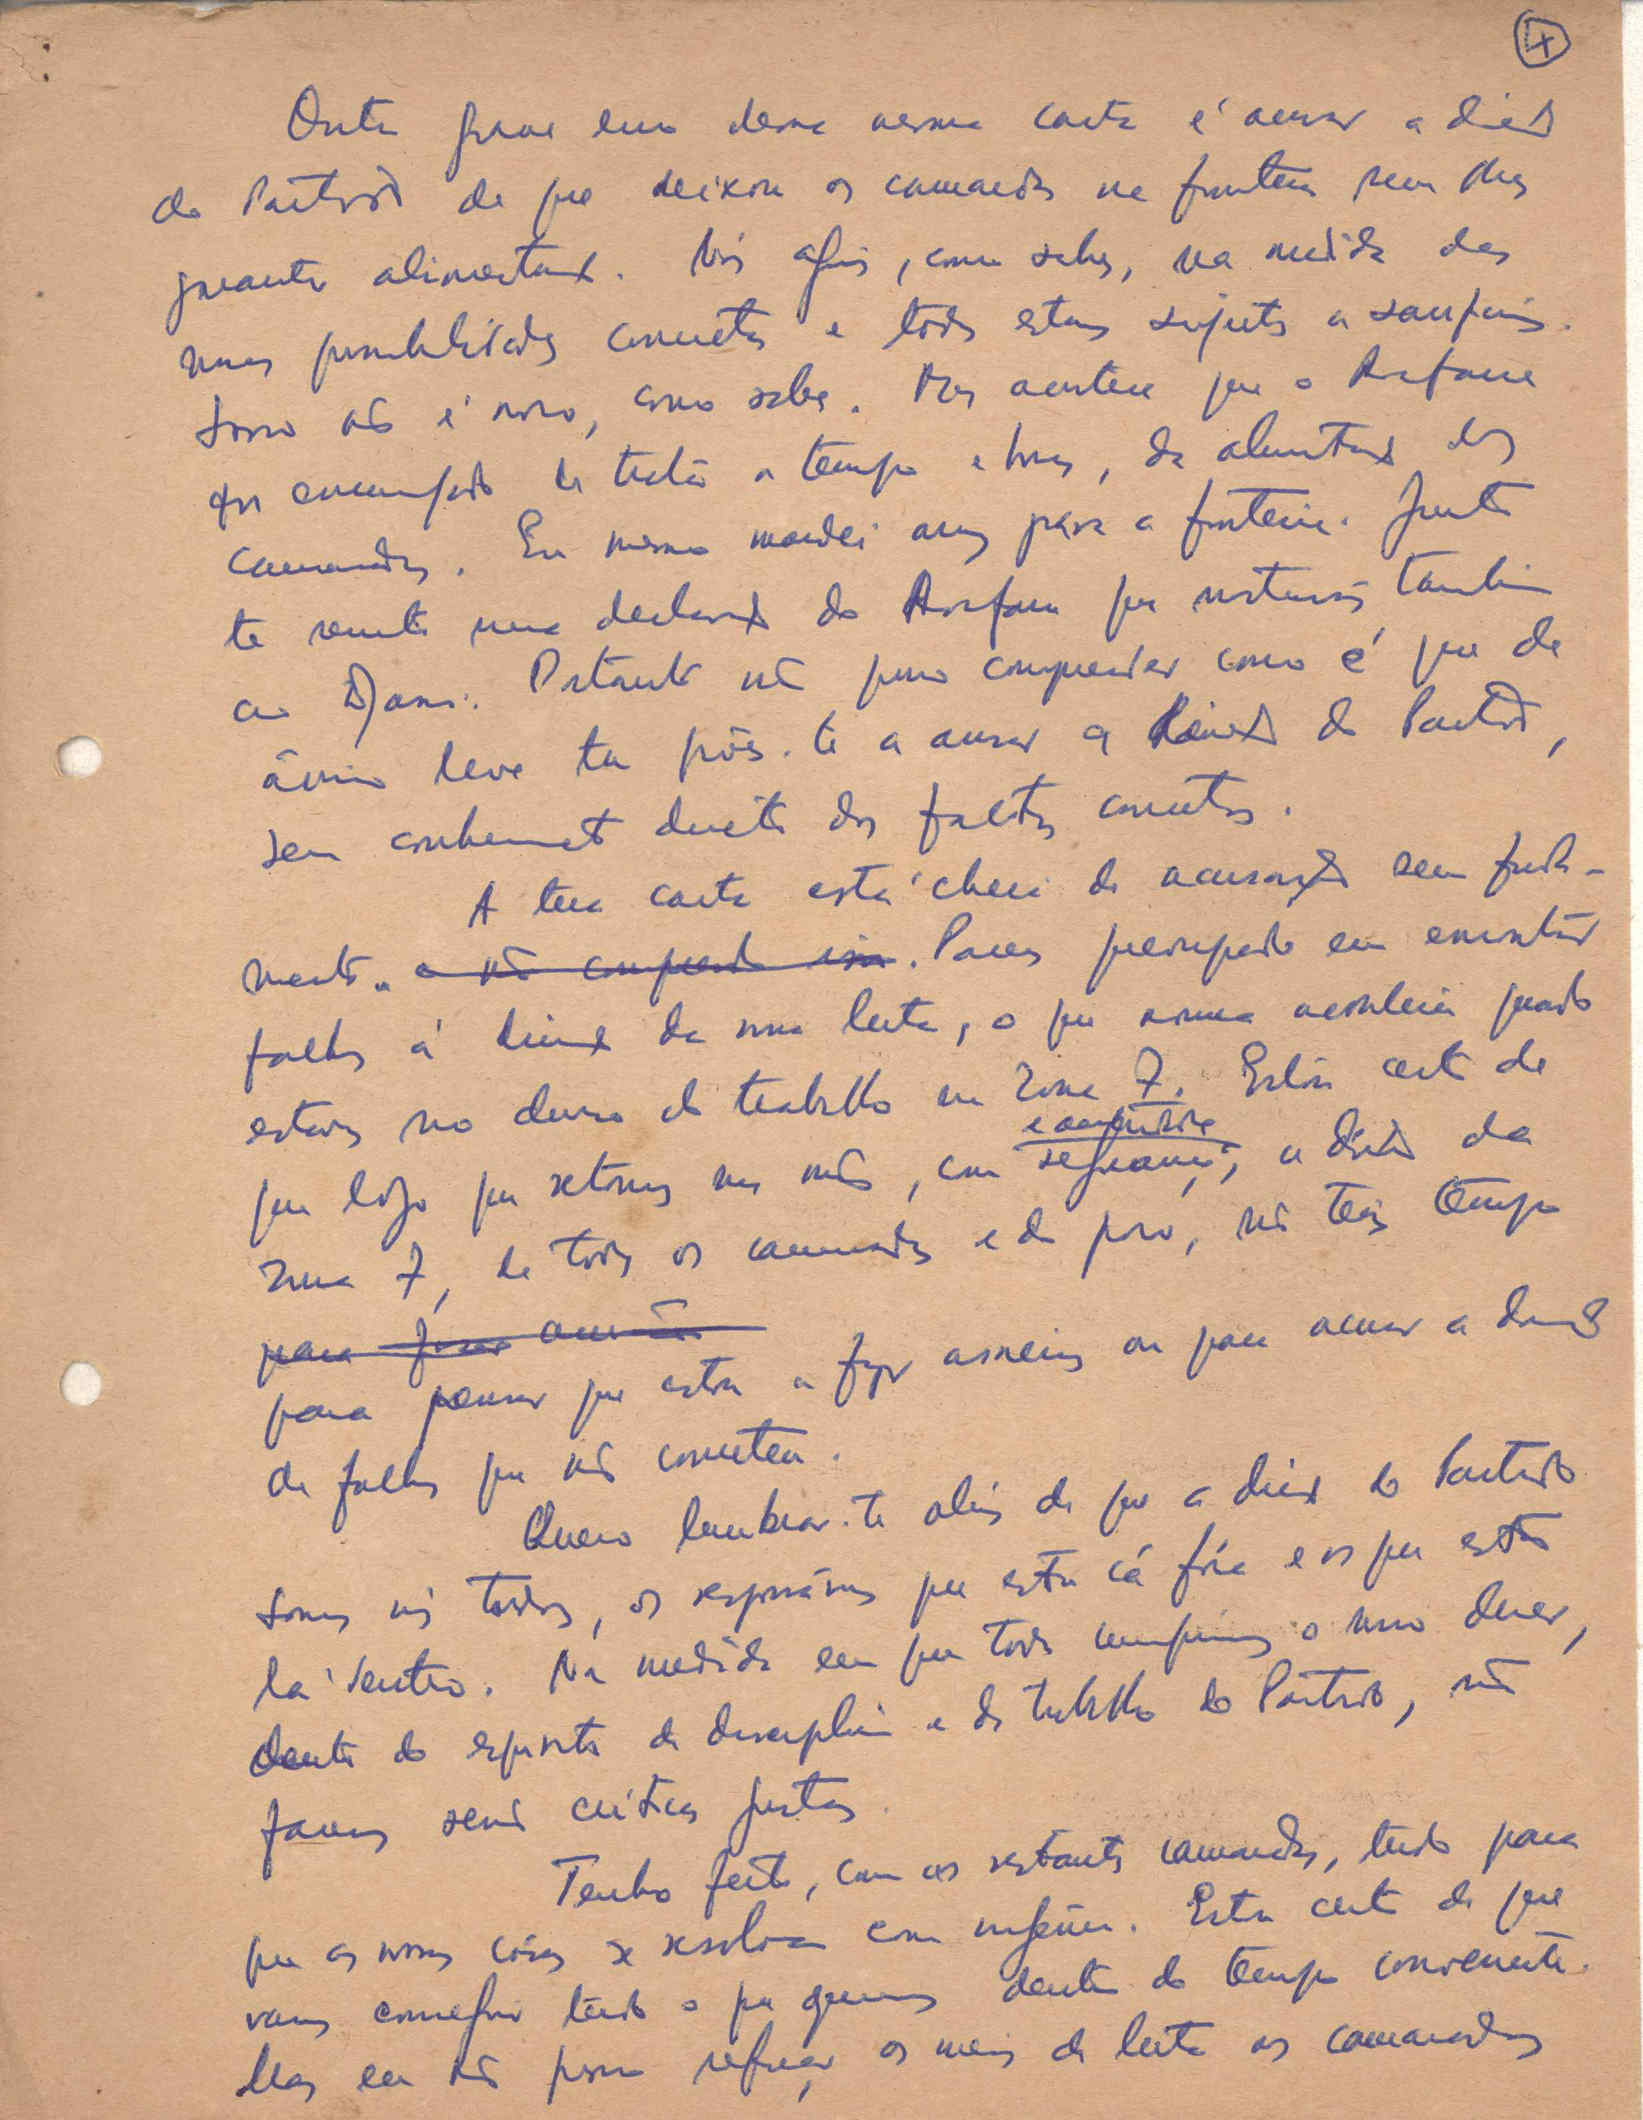 4
Outro grave erro dessa mesma carta é acusar a direcção
do Partido de que deixou os camaradas na fronteira sem lhes
garantir alimentação. Nós agimos, como sabes, na medida das
nossas possibilidades concretas e todos estamos sujeitos a sacrifícios.
Isso não é novo, como sabes. Mas acontece que o Arafam
foi encarregado de tratar a tempo e horas, da alimentação dos
camaradas. Eu mesmo mandei para a fronteira. Junto
te remeto uma declaração do Arafam que mostrarás também
ao Djassi. Portanto não posso compreender como é que de
ânimo leve tu pões-te a acusar a direcção do Partido,
sem conhecimento directo dos factos concretos.
A tua carta está cheia de acusações sem funda-
mento. e não compreendo isso. Pareces preocupado em encontrar
falhas à direcção da nossa luta, o que nunca acontecia quando
estavas no duro do trabalho na zona 7. Estou certo de
e consciência
que logo que retomes nas mãos, com segurança, a direcção da
zona 7, de todos os camaradas e do povo, não terás tempo
para
para pensar que estou a fazer asneiras ou para acusar a direcção
de falhas que não cometeu.
Quero lembrar-te aliás de que a direcção do Partido
somos nós todos, os responsáveis que estão cá fóra e os que estão
lá dentro. Na medida em que todos cumprimos o nosso dever,
dentro do espírito de disciplina e de trabalho do Partido, não
faremos senão críticas justas.
Tenho feito, com os restantes camaradas, tudo para
que as nossas coisas se resolvam com urgência. Estou certo de que
vamos conseguir tudo o que queremos dentro do tempo conveniente.
Mas eu não posso reforçar os meios de luta os camaradas